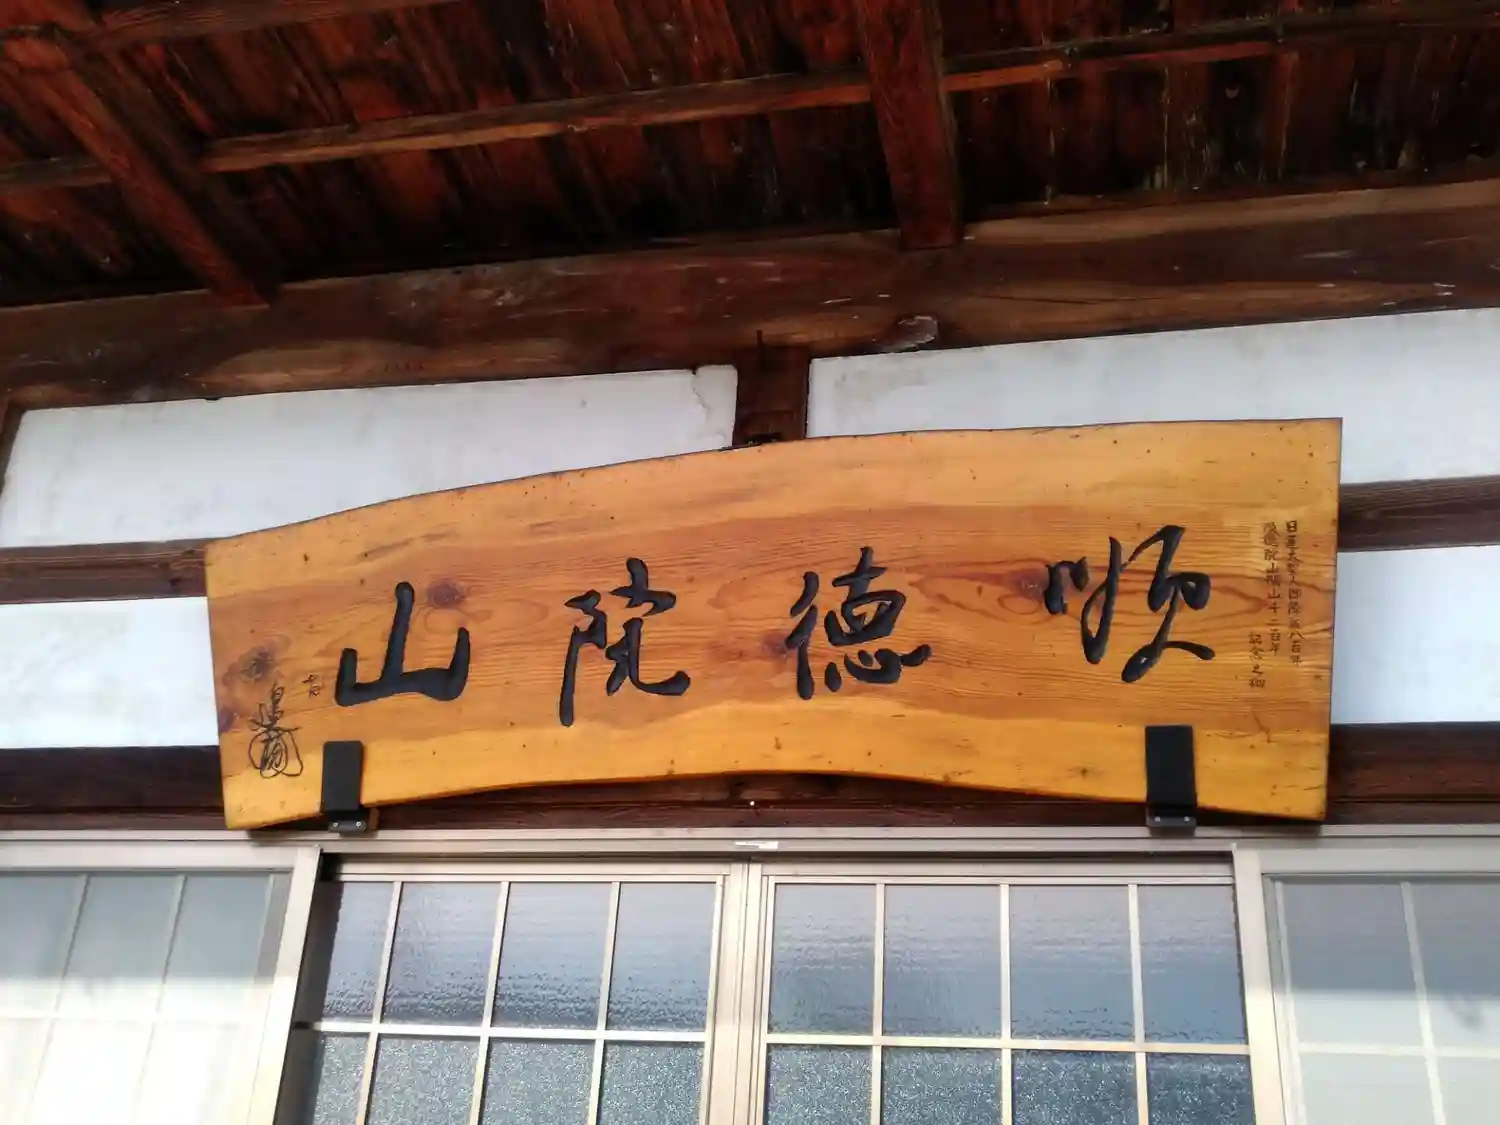 順徳院山
日蓮大聖人御降誕八百年
順徳院山開山千二百年
記念之砌